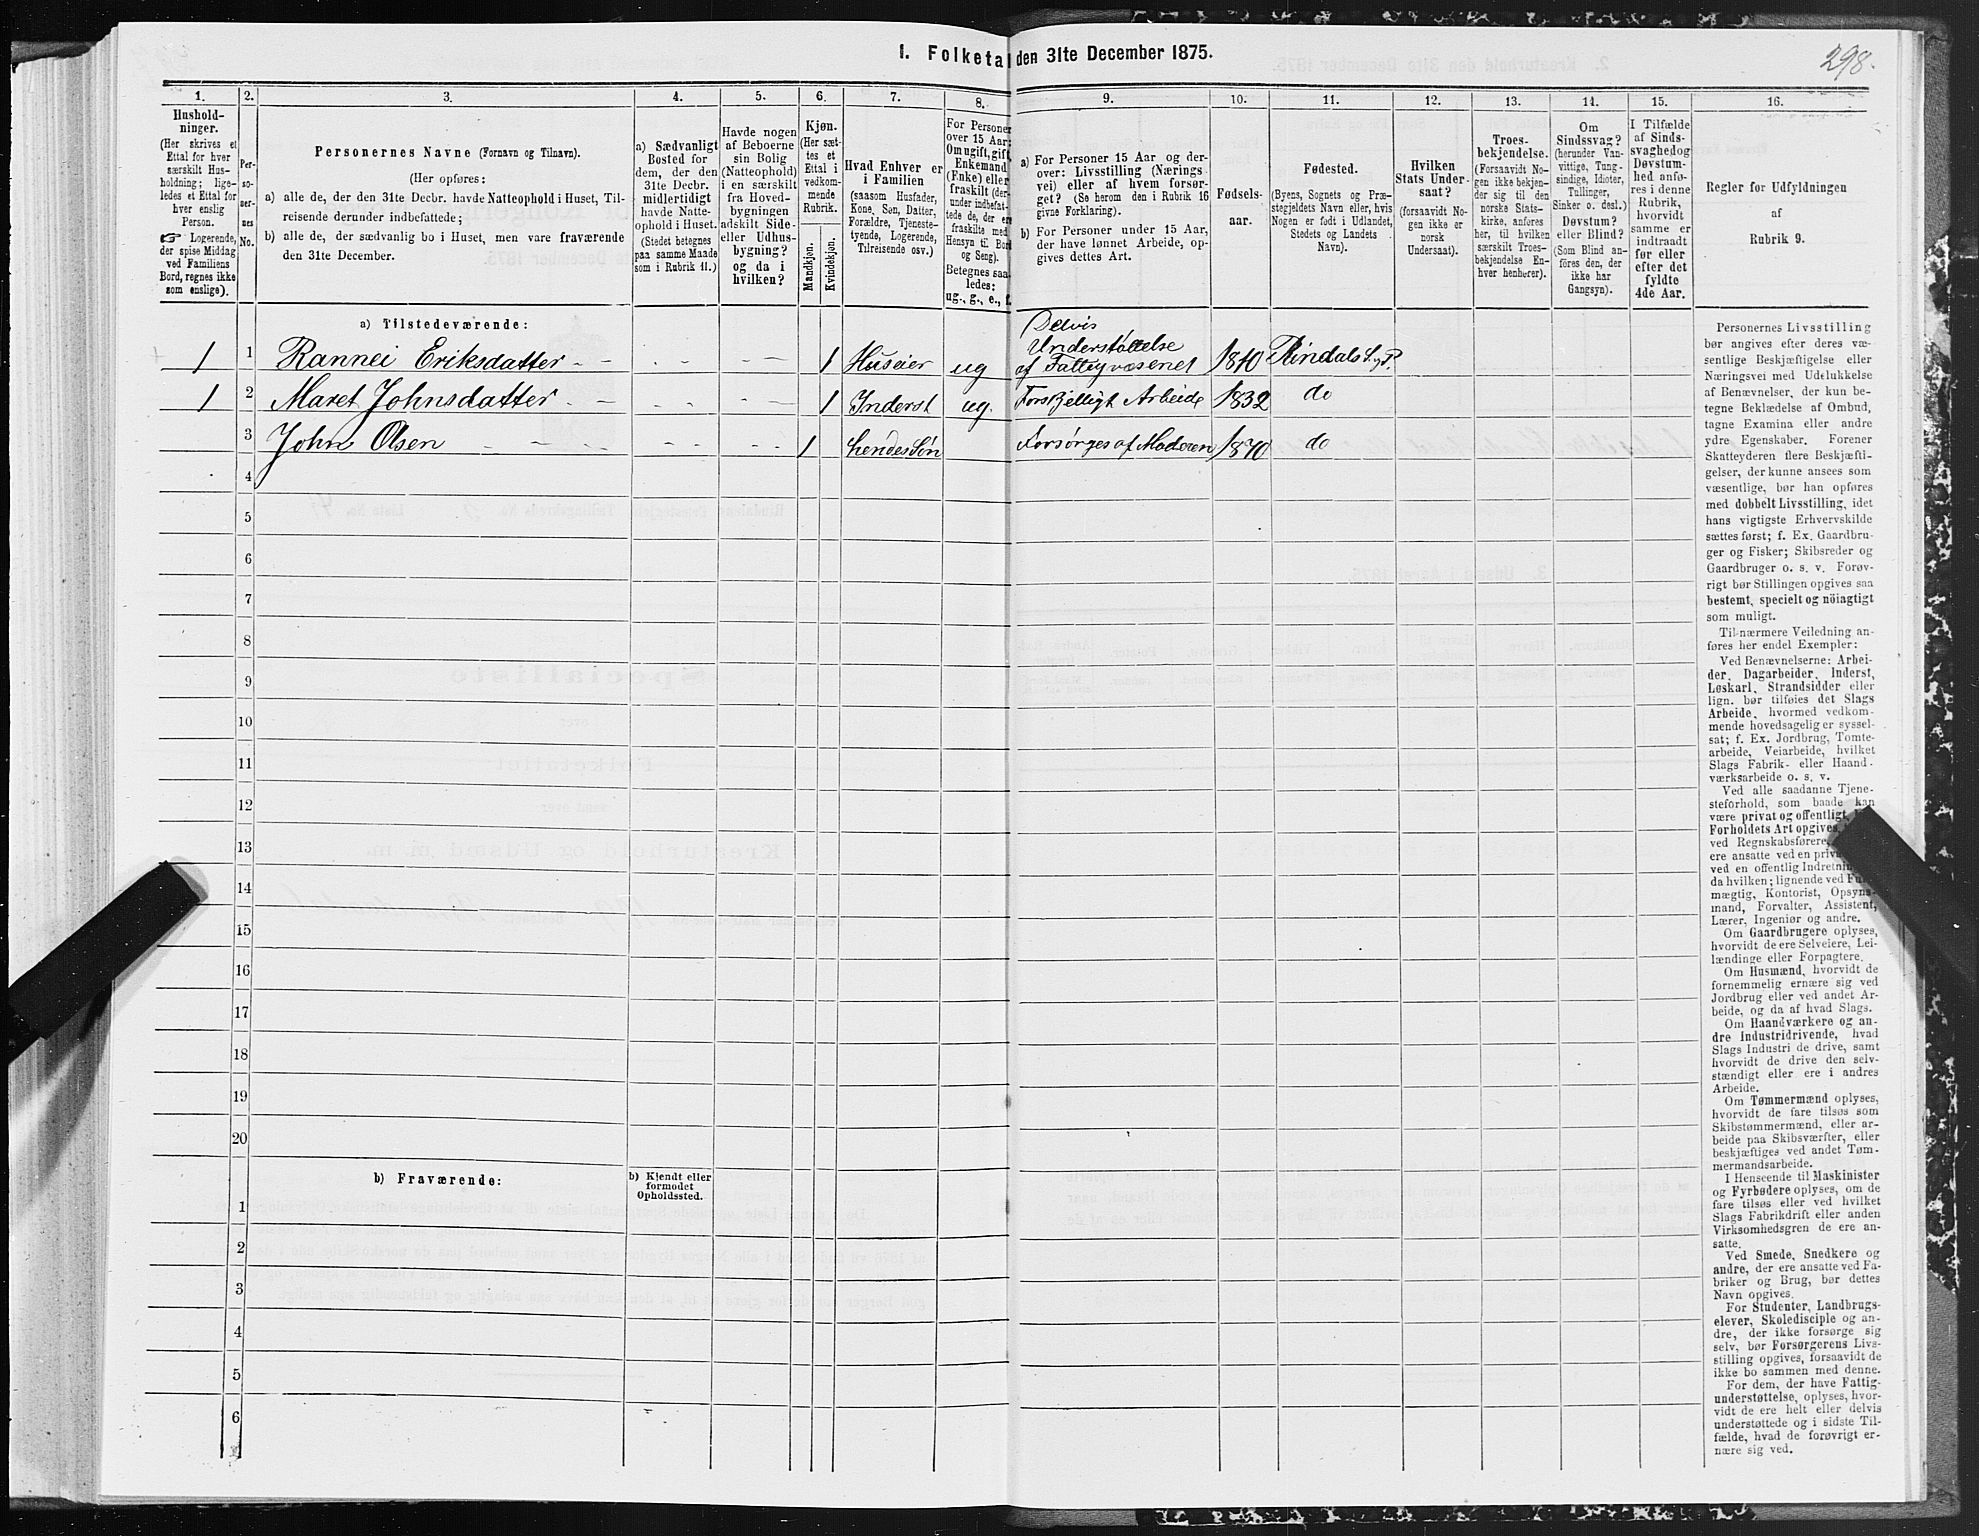 298.
1. Folketal den 31te December 1875.
1.
2.
3.
4.
5.
6.
7.
8.
9.
10.
11.
12.
13.
14.
15.
16.
Hushold-
ninger.
(Her skrives et
Ettal for hver
særskilt Hus-
holdning; lige-
ledes et Ettal for
hver enslig
Person.
☞ Logerende,
der spise Middag
ved Familiens
Bord, regnes ikke
som enslige).
Per-
so-
ner-
nes
No.
Personernes Navne (Fornavn og Tilnavn).
(Her opføres:
a) alle de, der den 31te Decbr. havde Natteophold i Huset, Til-
reisende derunder indbefattede;
b) alle de, der sædvanlig bo i Huset, men vare fraværende
den 31te December.
a) Sædvanligt
Bosted for
dem, der den
31te Decbr.
midlertidigt
havde Natte-
ophold i Huset.
(Stedet betegnes
paa samme Maade
som i Rubrik 11.)
Havde nogen
af Beboerne
sin Bolig
(Natteophold)
i en særskilt
fra Hoved-
bygningen
adskilt Side-
eller Udhus-
bygning?
og da i
hvilken?
Kjøn.
(Her sæt-
tes et
Ettal i
vedkom-
mende
Rubrik.
Mandkjøn.
Kvindekjøn.
Hvad Enhver er
i Familien
(saasom Husfader,
Kone, Søn, Datter,
Forældre, Tjeneste-
tyende, Logerende,
Tilreisende osv.)
For Personer
over 15 Aar:
Om ugift, gift,
Enkemand
(Enke) eller
fraskilt (der-
under indbefat-
tede de, der ere
fraskilte med
Hensyn til Bord
og Seng).
Betegnes saa-
ledes:
ug., g., e., f.
a) For Personer 15 Aar og der-
over: Livsstilling (Nærings-
vei) eller af hvem forsør-
get? (Se herom den i Rubrik 16
givne Forklaring).
b) For Personer under 15 Aar,
der have lønnet Arbeide, op-
gives dettes Art.
Fødsels-
aar.
Fødested.
(Byens, Sognets og Præ-
stegjeldets Navn eller, hvis
Nogen er født i Udlandet,
Stedets og Landets
Navn).
Hvilken
Stats Under-
saat?
(forsaavidt No-
gen ikke er
norsk
Undersaat).
Troes-
bekjendelse.
(Forsaavidt No-
gen ikke bekjen-
der sig til den
norske Stats-
kirke, anføres
her, til hvilken
særskilt Troes-
bekjendelse En-
hver henhører).
Om
Sindssvag?
(herunder Van-
vittige, Tung-
sindige, Idioter,
Tullinger,
Sinker o. desl.)
Døvstum?
eller Blind?
(Som Blind an-
føres den, der
ikke har
Gangsyn).
I Tilfælde
af Sinds-
svaghed og
Døvstum-
hed anfø-
res i denne
Rubrik,
hvorvidt
samme er
indtraadt
før eller
efter det
fyldte
4de Aar.
Regler for Udfyldningen
af
Rubrik 9.
a) Tilstedeværende:
1 1 Rannei Eriksdatter - - - - - 1 Huseier ug Delvis
Understøttelse
af Fattigvæsenet 1840 Rindals S. og P.
1 2 Maret Johnsdatter - - - - - 1 Inderst ug. Forskjelligt Arbeide 1832 do
3 John Olsen - - - - - - 1 hendes Søn Forsørges af Moderen 1870 do
4
5
6
7
8
9
10
11
12
13
14
15
16
17
18
19
20
b) Fraværende:
b) Kjendt eller
formodet
Opholdssted.
1
2
3
4
5
6
Personernes Livsstilling
bør angives efter deres væ-
sentlige Beskjæftigelse eller
Næringsvei med Udelukkelse
af Benævnelser, der kun be-
tegne Beklædelse af Ombud,
tagne Examina eller andre
ydre Egenskaber. Forener
Skatteyderen flere Beskjæfti-
gelser, der kunne ansees som
væsentlige, bør han opføres
med dobbelt Livsstilling, idet
hans vigtigste Erhvervskilde
sættes først; f. Ex. Gaardbru-
ger og Fisker; Skibsreder og
Gaardbruger o. s. v. Forøv-
rigt bør Stillingen opgives saa
bestemt, specielt og nöiagtigt
som muligt.
Til nærmere Veiledning an-
føres her endel Exempler:
Ved Benævnelserne: Arbei-
der, Dagarbeider, Inderst,
Løskarl, Strandsidder eller
lign. bør tilføies det Slags
Arbeide, hvormed vedkom-
mende hovedsagelig er syssel-
sat; f. Ex. Jordbrug, Tomte-
arbeide, Veiarbeide, hvilket
Slags Fabrik- eller Haand-
værksarbeide o. s. v.
Ved alle saadanne Tjene-
steforhold, som baade kan
være privat og offentligt,
Forholdets Art opgives,
ved Regnskabsfører,
ere ansatte ved en
ved en offentlig Indretning
da hvilken; lignende ved
mægtig, Kontorist, Opsyns-
mand, Forvalter, Assistent,
Lærer, Ingeniør og andre.
Om Gaardbrugere oplyses,
hvorvidt de ere Selveiere, Lei-
lændinge eller Forpagtere.
Om Husmænd, hvorvidt de
fornemmelig ernære sig ved
Jordbrug eller ved andet Ar-
beide, og da af hvad Slags.
Om Haandværkere og an-
dre Industridrivende, hvad
Slags Industri de drive, samt
hvorvidt de drive den selv-
stændigt eller ere i andres
Arbeide.
Om Tømmermænd oplyses,
hvorvidt de fare tilsøs som
Skibstømmermænd, eller ar-
beide paa Skibsværfter, eller
beskjæftiges ved andet Tøm-
mermandsarbeide.
I Henseende til Maskinister
og Fyrbødere oplyses, om de
fare tilsøs eller ved hvilket
Slags Fabrikdrift eller anden
Virksomhedsgren de ere an-
satte.
Ved Smede, Snedkere og
andre, der ere ansatte ved Fa-
briker og Brug, bør dettes
Navn opgives.
For Studenter, Landbrugs-
elever, Skoledisciple og an-
dre, der ikke forsørge sig
selv, bør Forsørgerens Livs-
stilling opgives, forsaavidt de
ikke bo sammen med denne.
For dem, der have Fattig-
understøttelse, oplyses, hvor-
vidt de ere helt eller delvis
understøttede og i sidste Til-
fælde, hvad de forøvrigt er-
nære sig ved.